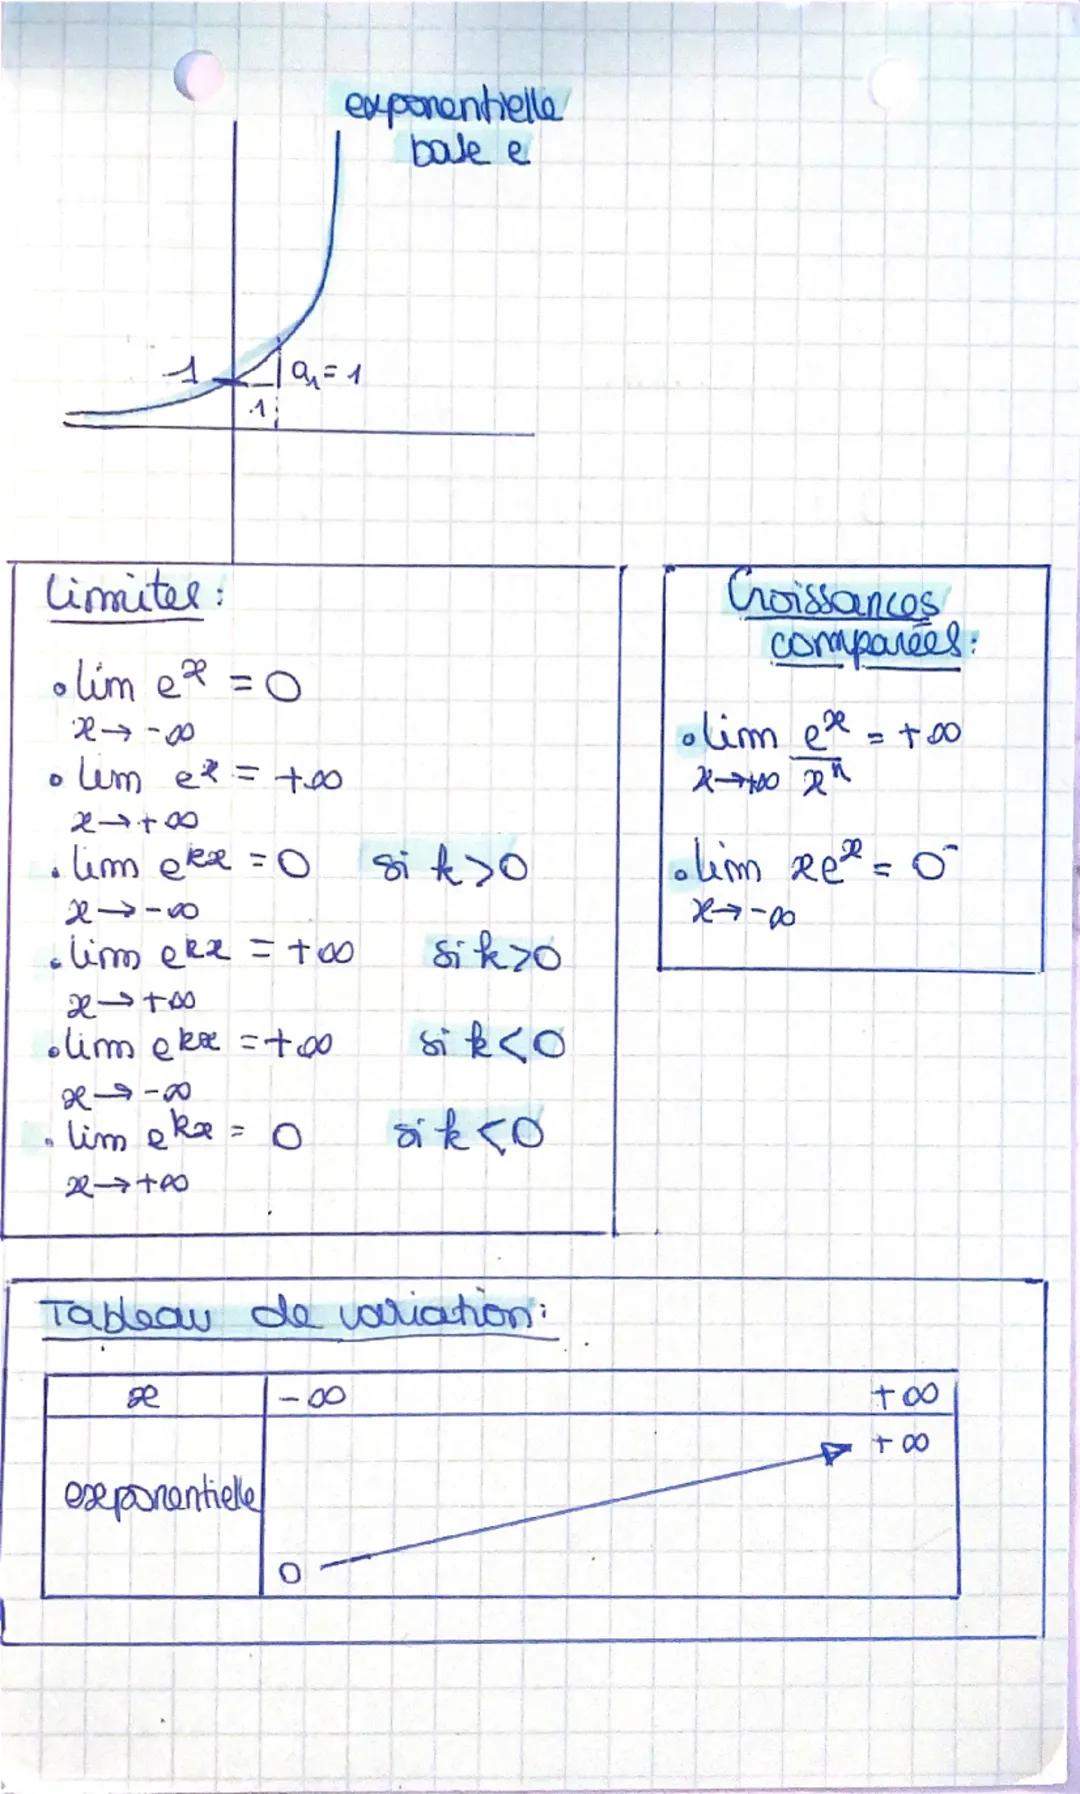 exponentielle
base e
1
a₁ = 1
1
Limites :
• lim eˣ = 0
x → -∞
• lim eˣ = +∞
x → +∞
• lim eᵏˣ = 0 si k > 0
x → -∞
• lim eᵏˣ = +∞ si k > 0
x → +∞
• lim eᵏˣ = +∞ si k < 0
x → -∞
• lim eᵏˣ = 0 si k < 0
x → +∞
Croissances
comparées :
• lim eˣ/xⁿ = +∞
x → +∞
• lim xeˣ = 0⁻
x → -∞
Tableau de variation :
x -∞ +∞
+∞
exponentielle
0